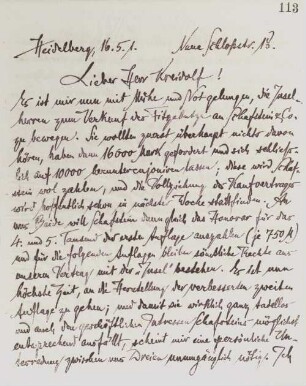 113
Heidelberg, 16.5.1. Neue Schloßstr. 13.
Lieber Herr Kreidolf!
Es ist mir nun mit Mühe und Not gelungen, die Insel-
herren zum Verkauf der Fitzebutze an Schafstein & Co
zu bewegen. Sie wollten zuerst überhaupt nichts davon
hören, haben dann 16000 Mark gefordert und sich schließ-
lich auf 10000 herunter lassen; diese wird Schaf-
stein wol zahlen, und die Vollziehung des Kaufvertrages
wird hoffentlich schon in nächster Woche stattfinden. An
uns Beide will Schafstein dann gleich das Honorar für das
4. und 5. Tausend der erste Auflage auszahlen (je 750 M)
und für die folgenden Auflagen bleiben sämtliche Rechte aus
unserem Vertrag mit der "Insel" bestehen. Es ist nun
höchste Zeit, an die Herstellung der verbesserten zweiten
Auflage zu gehen; und damit sie wirklich ganz tadellos
und auch den geschäftlichen Interessen Schafsteins möglichst
entsprechend ausfällt, scheint mir eine persönliche Un-
terredung zwischen uns Dreien unumgänglich nötig. Ich